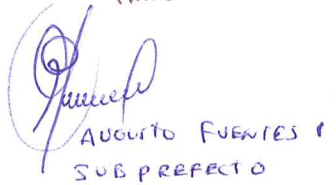 AUGUSTO FUENTES
SUBPREFECTO